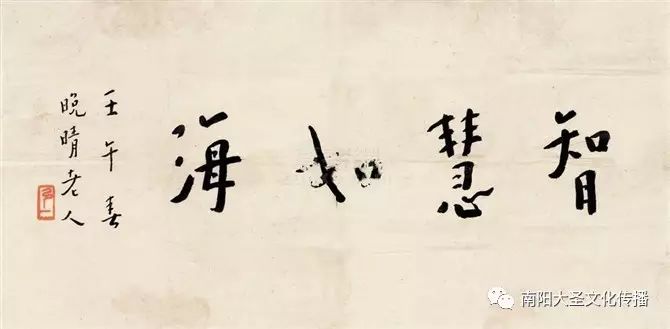 智慧如海
壬午春
晚晴老人
弘一
南阳大圣文化传播